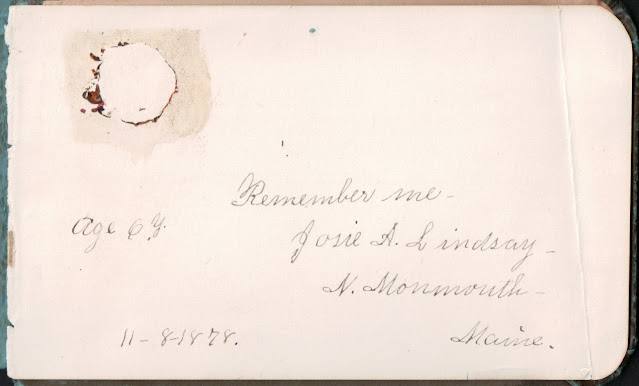 Remember me-
Age 6 y.
Josie A. Lindsay-
N. Monmouth-
Maine.
11-8-1878.